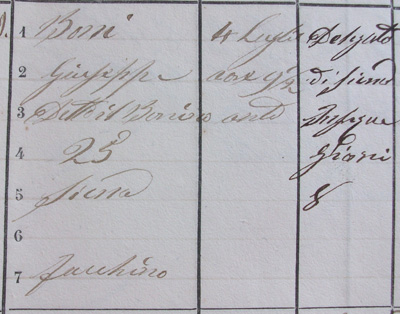 1 Boni 4 Luglio Delegato
2 Giuseppe ore 9½ di Siena
3 Detto il Bonino
4 25 Giorni
5 Siena 8
6
7 Facchino